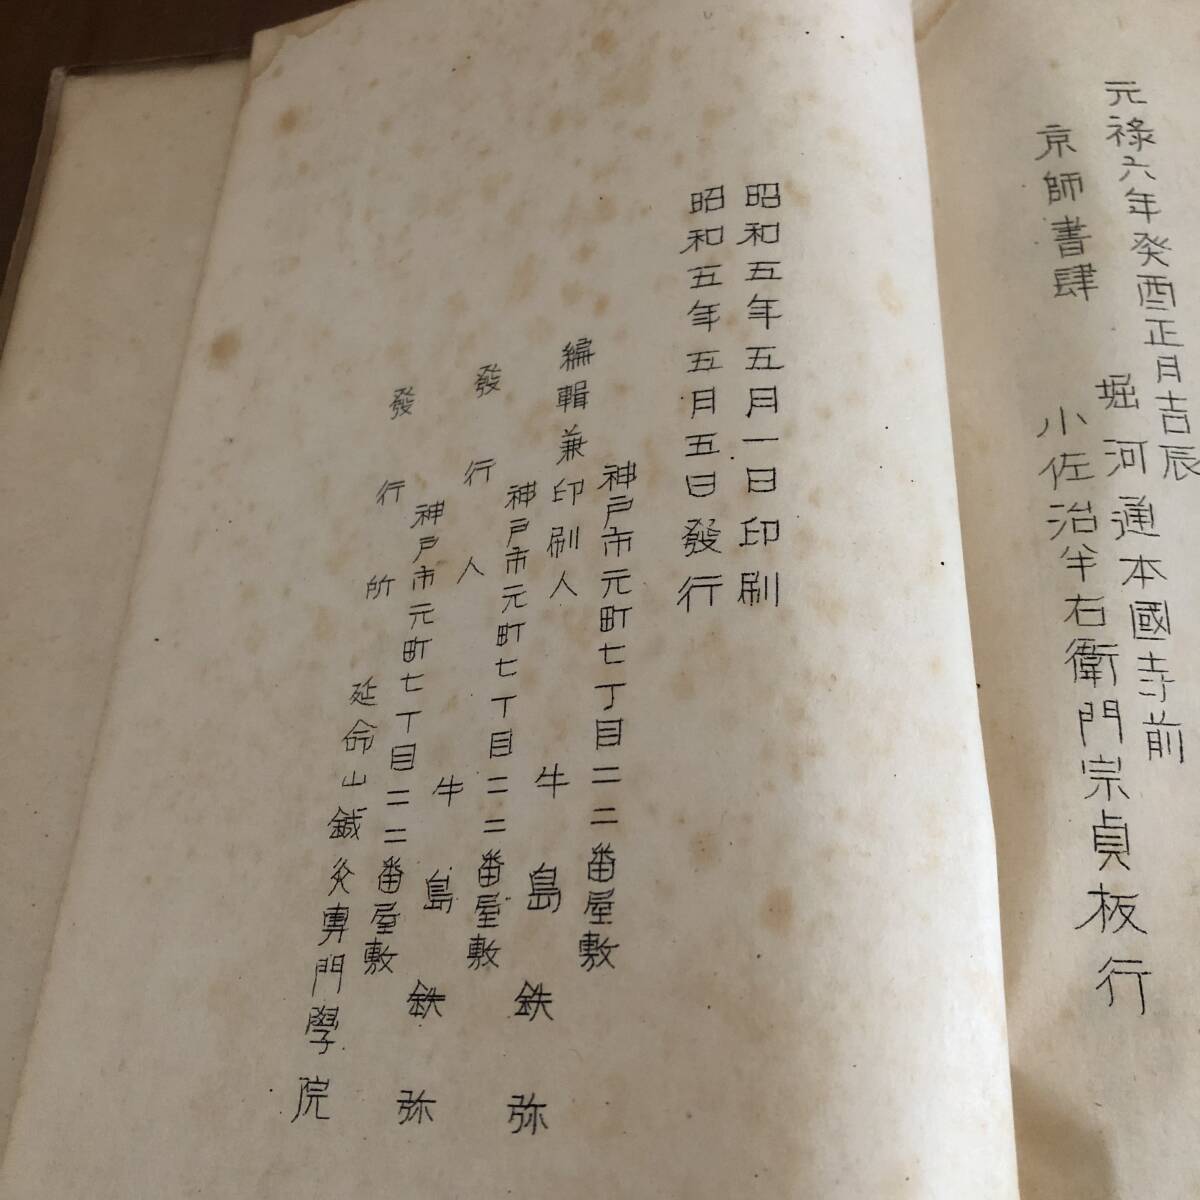 元祿六年癸酉正月吉辰
京師書肆
堀河通本國寺前
小佐治半右衛門宗貞板行
昭和五年五月一日印刷
昭和五年五月五日發行
神戸市元町七丁目二二番屋敷
編輯兼印刷人 牛島鉄弥
神戸市元町七丁目二二番屋敷
發行人 牛島鉄弥
神戸市元町七丁目二二番屋敷
發行所 延命山鍼灸專門學院